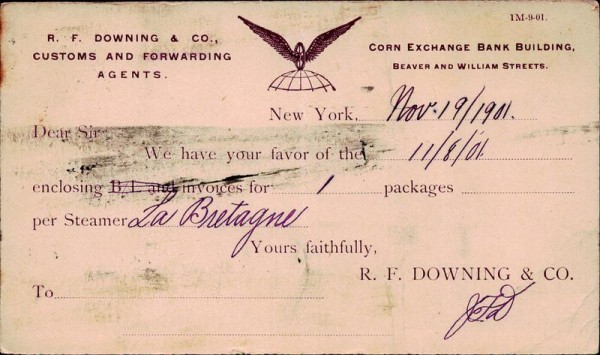 1M-9-01.
R. F. DOWNING & CO.,
CUSTOMS AND FORWARDING
AGENTS.
CORN EXCHANGE BANK BUILDING,
BEAVER AND WILLIAM STREETS.
New York, Nov. 19/1901.
Dear Sir
We have your favor of the 11/8/01
enclosing B/L and invoices for 1 packages
per Steamer La Bretagne
Yours faithfully,
R. F. DOWNING & CO.
To